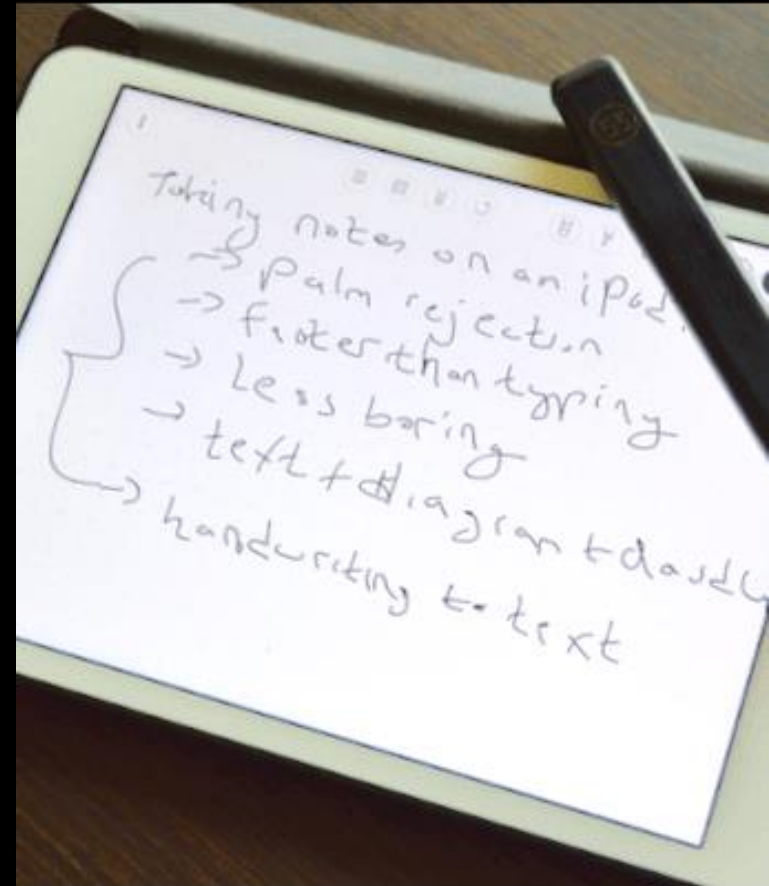 Taking notes on an iPad
→ palm rejection
→ faster than typing
→ Less boring
→ text + diagram +
→ handwriting to text
53